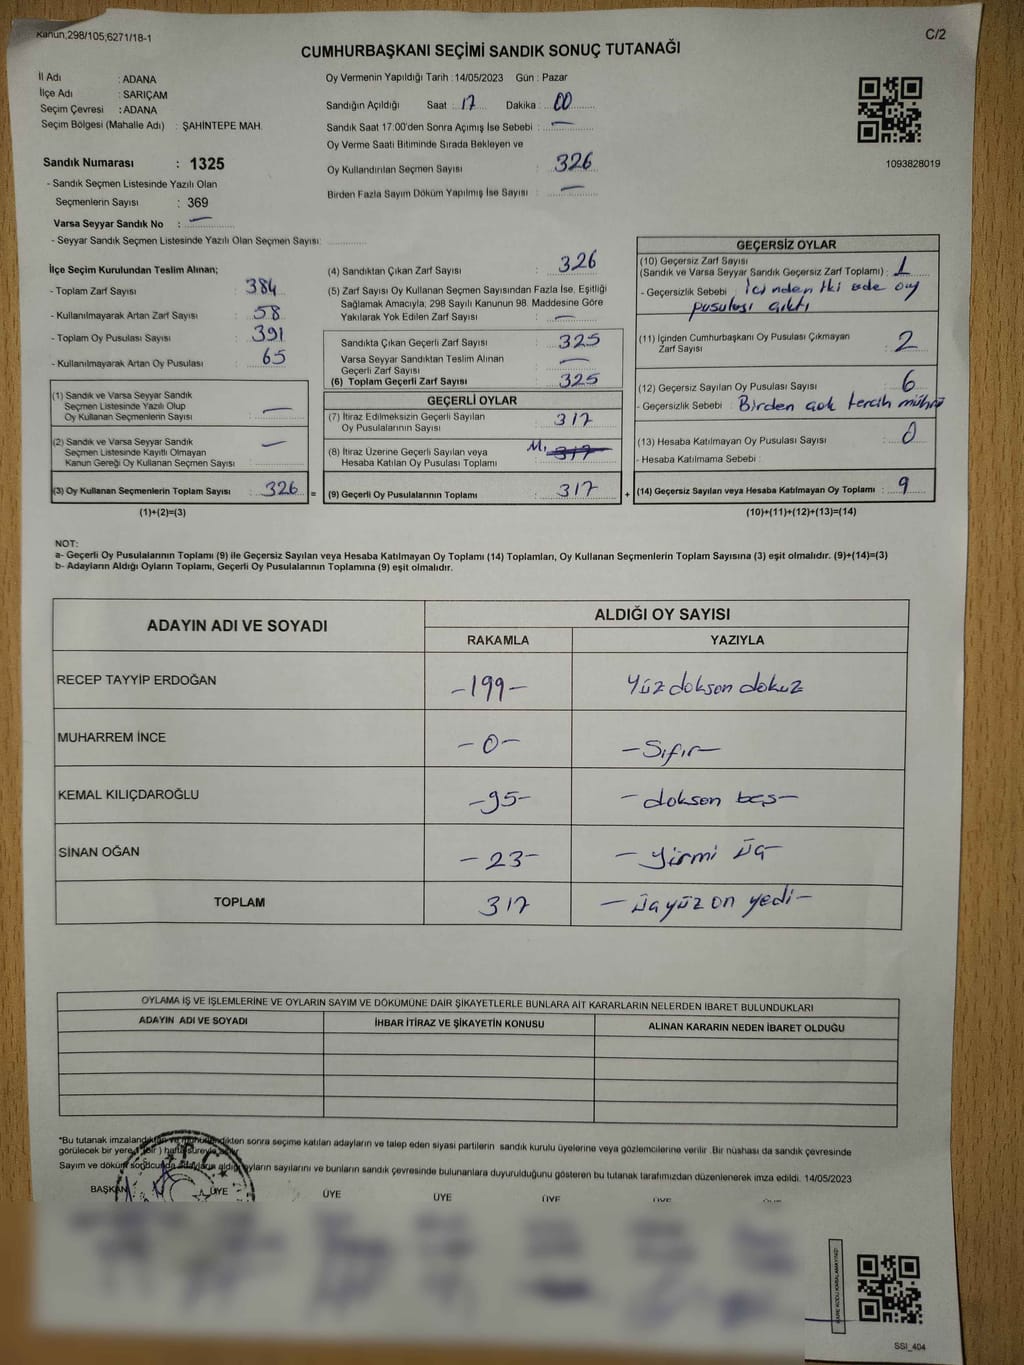 Kanun,298/105,6271/18-1
C/2
CUMHURBAŞKANI SEÇİMİ SANDIK SONUÇ TUTANAĞI
İl Adı : ADANA
İlçe Adı : SARIÇAM
Seçim Çevresi : ADANA
Seçim Bölgesi (Mahalle Adı) : ŞAHİNTEPE MAH.
Sandık Numarası : 1325
- Sandık Seçmen Listesinde Yazılı Olan
Seçmenlerin Sayısı : 369
Varsa Seyyar Sandık No : —
- Seyyar Sandık Seçmen Listesinde Yazılı Olan Seçmen Sayısı:
Oy Vermenin Yapıldığı Tarih : 14/05/2023 Gün : Pazar
Sandığın Açıldığı Saat : 17 Dakika : 00
Sandık Saat 17:00'den Sonra Açımış İse Sebebi : —
Oy Verme Saati Bitiminde Sırada Bekleyen ve
Oy Kullandırılan Seçmen Sayısı : 326
Birden Fazla Sayım Döküm Yapılmış İse Sayısı : —
1093828019
İlçe Seçim Kurulundan Teslim Alınan;
- Toplam Zarf Sayısı : 384
- Kullanılmayarak Artan Zarf Sayısı : 58
- Toplam Oy Pusulası Sayısı : 391
- Kullanılmayarak Artan Oy Pusulası : 65
(1) Sandık ve Varsa Seyyar Sandık
Seçmen Listesinde Yazılı Olup
Oy Kullanan Seçmenlerin Sayısı : —
(2) Sandık ve Varsa Seyyar Sandık
Seçmen Listesinde Kayıtlı Olmayan
Kanun Gereği Oy Kullanan Seçmen Sayısı : —
(3) Oy Kullanan Seçmenlerin Toplam Sayısı : 326 =
(1)+(2)=(3)
(4) Sandıktan Çıkan Zarf Sayısı : 326
(5) Zarf Sayısı Oy Kullanan Seçmen Sayısından Fazla İse, Eşitliği
Sağlamak Amacıyla, 298 Sayılı Kanunun 98. Maddesine Göre
Yakılarak Yok Edilen Zarf Sayısı : —
Sandıkta Çıkan Geçerli Zarf Sayısı : 325
Varsa Seyyar Sandıktan Teslim Alınan
Geçerli Zarf Sayısı : —
(6) Toplam Geçerli Zarf Sayısı : 325
GEÇERLİ OYLAR
(7) İtiraz Edilmeksizin Geçerli Sayılan
Oy Pusulalarının Sayısı : 317
(8) İtiraz Üzerine Geçerli Sayılan veya
Hesaba Katılan Oy Pusulası Toplamı : 317
(9) Geçerli Oy Pusulalarının Toplamı : 317 +
GEÇERSİZ OYLAR
(10) Geçersiz Zarf Sayısı
(Sandık ve Varsa Seyyar Sandık Geçersiz Zarf Toplamı) : 1
- Geçersizlik Sebebi : İcinden iki ade oy
pusulası çıktı
(11) İçinden Cumhurbaşkanı Oy Pusulası Çıkmayan
Zarf Sayısı : 2
(12) Geçersiz Sayılan Oy Pusulası Sayısı : 6
- Geçersizlik Sebebi : Birden çok tercih mührü
(13) Hesaba Katılmayan Oy Pusulası Sayısı : 0
- Hesaba Katılmama Sebebi :
(14) Geçersiz Sayılan veya Hesaba Katılmayan Oy Toplamı : 9
(10)+(11)+(12)+(13)=(14)
NOT:
a- Geçerli Oy Pusulalarının Toplamı (9) ile Geçersiz Sayılan veya Hesaba Katılmayan Oy Toplamı (14) Toplamları, Oy Kullanan Seçmenlerin Toplam Sayısına (3) eşit olmalıdır. (9)+(14)=(3)
b- Adayların Aldığı Oyların Toplamı, Geçerli Oy Pusulalarının Toplamına (9) eşit olmalıdır.
ADAYIN ADI VE SOYADI
ALDIĞI OY SAYISI
RAKAMLA YAZIYLA
RECEP TAYYİP ERDOĞAN -199- Yüz doksan dokuz
MUHARREM İNCE -0- -Sıfır-
KEMAL KILIÇDAROĞLU -95- -doksan beş-
SİNAN OĞAN -23- -yirmi üç-
TOPLAM 317 -üçyüz on yedi-
OYLAMA İŞ VE İŞLEMLERİNE VE OYLARIN SAYIM VE DÖKÜMÜNE DAİR ŞİKAYETLERLE BUNLARA AİT KARARLARIN NELERDEN İBARET BULUNDUKLARI
ADAYIN ADI VE SOYADI İHBAR İTİRAZ VE ŞİKAYETİN KONUSU ALINAN KARARIN NEDEN İBARET OLDUĞU
*Bu tutanak imzalandıktan ve mühürlendikten sonra seçime katılan adayların ve talep eden siyasi partilerin sandık kurulu üyelerine veya gözlemcilerine verilir. Bir nüshası da sandık çevresinde
görülecek bir yere (bir) hafta süreyle asılır.
Sayım ve döküm sonucunda adayların aldığı oyların sayılarını ve bunların sandık çevresinde bulunanlara duyurulduğunu gösteren bu tutanak tarafımızdan düzenlenerek imza edildi. 14/05/2023
BAŞKAN ÜYE ÜYE ÜYE ÜYE ÜYE ÜYE
SSI_404